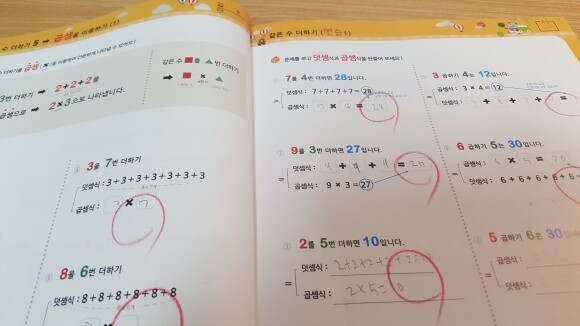 수 더하기 5 ➡ 곱셈을 이용하기 (1)
2+2+2를
번 더하기 ➡
곱셈으로 ➡ 2×3으로 나타냅니다.
같은 수 ■를 ▲번 더하기
➡ ■ × ▲
3을 7번 더하기
덧셈식 : 3+3+3+3+3+3+3
곱셈식 : 3 × 7
8을 6번 더하기
덧셈식 : 8+8+8+8+8+8
곱셈식 :
같은 수 더하기 (연습1)
문제를 보고 덧셈식과 곱셈식을 만들어 보세요!
7을 4번 더하면 28입니다.
덧셈식 : 7+7+7+7=28
곱셈식 : × = 28
9를 3번 더하면 27입니다.
덧셈식 : + + =
곱셈식 : 9 × 3 = 27
2를 5번 더하면 10입니다.
덧셈식 : 2+2+2+2+2=
곱셈식 : 2×5=10
3 곱하기 4는 12입니다.
곱셈식 : 3 × 4 = 12
덧셈식 :
6 곱하기 5는 30입니다.
곱셈식 : 6 × 5 = 30
덧셈식 : 6+6+6+6+6=
5 곱하기 6은 30입니다.
덧셈식 :
곱셈식 :